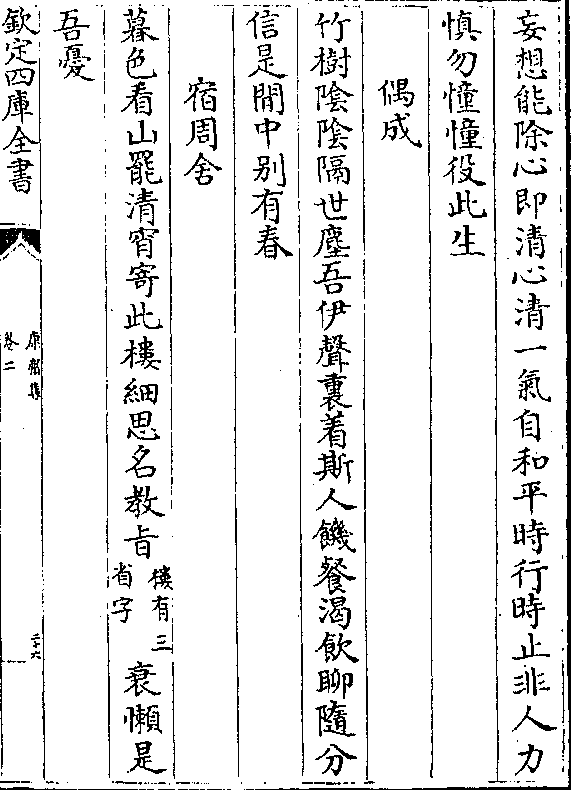 妄想能除心即清心清一氣自和平時行時止非人力
慎勿憧憧役此生
偶成
竹樹陰陰隔世塵吾伊聲裏着斯人饑餐渴飲聊隨分
信是閒中别有春
宿周舍
暮色看山罷清宵寄此樓細思名教旨樓有三省字衰懶是
吾憂
欽定四庫全書
康齋集
卷二
二十六